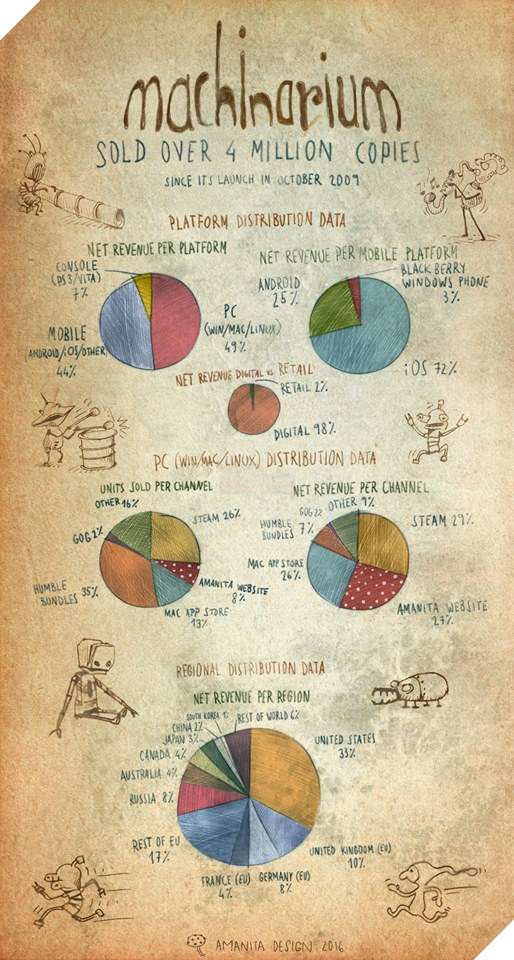 machinarium
SOLD OVER 4 MILLION COPIES
SINCE ITS LAUNCH IN OCTOBER 2009
PLATFORM DISTRIBUTION DATA
NET REVENUE PER PLATFORM
CONSOLE
(PS3/VITA)
7%
PC
(WIN/MAC/LINUX)
49%
MOBILE
(ANDROID/iOS/OTHER)
44%
NET REVENUE PER MOBILE PLATFORM
ANDROID
25%
BLACK BERRY
WINDOWS PHONE
3%
iOS 72%
NET REVENUE DIGITAL vs. RETAIL
RETAIL 2%
DIGITAL 98%
PC (WIN/MAC/LINUX) DISTRIBUTION DATA
UNITS SOLD PER CHANNEL
OTHER 16%
STEAM 26%
GOG 2%
AMANITA WEBSITE
8%
HUMBLE
BUNDLES 35%
MAC APP STORE
13%
NET REVENUE PER CHANNEL
OTHER 9%
GOG 2%
STEAM 29%
HUMBLE
BUNDLES 7%
MAC APP STORE
26%
AMANITA WEBSITE
27%
REGIONAL DISTRIBUTION DATA
NET REVENUE PER REGION
SOUTH KOREA 1%
REST OF WORLD 6%
CHINA 2%
JAPAN 3%
UNITED STATES
33%
CANADA 4%
AUSTRALIA 4%
RUSSIA 8%
REST OF EU
17%
UNITED KINGDOM (EU)
10%
FRANCE (EU)
4%
GERMANY (EU)
8%
AMANITA DESIGN 2016